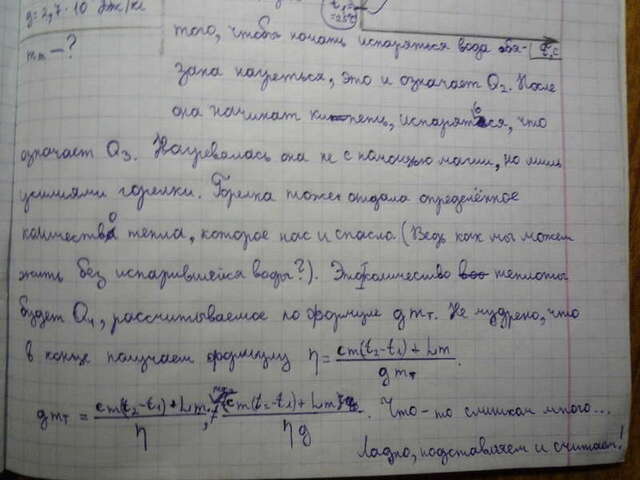 q=2,7·10 Дж/кг
t₁=
=25°C
m_т – ?
того, чтобы начать испаряться вода обя- t,c
зана нагреться, это и означает Q₂. После
она начинает кипеть, испаряться, что
означает Q₃. Нагревалась она не с помощью магии, но лишь
усилиями горелки. Горелка тоже отдала определённое
количество тепла, которое нас и спасло. (Ведь как мы можем
жить без испарившейся воды?). Это количество теплоты
будет Q₁, рассчитываемое по формуле qm_т. Не мудрено, что
в конце получаем формулу η = (cm(t₂-t₁)+Lm)/(qm_т).
qm_т = (cm(t₂-t₁)+Lm)/η, (cm(t₂-t₁)+Lm)/(ηq). Что-то слишком много...
Ладно, подставляем и считаем!